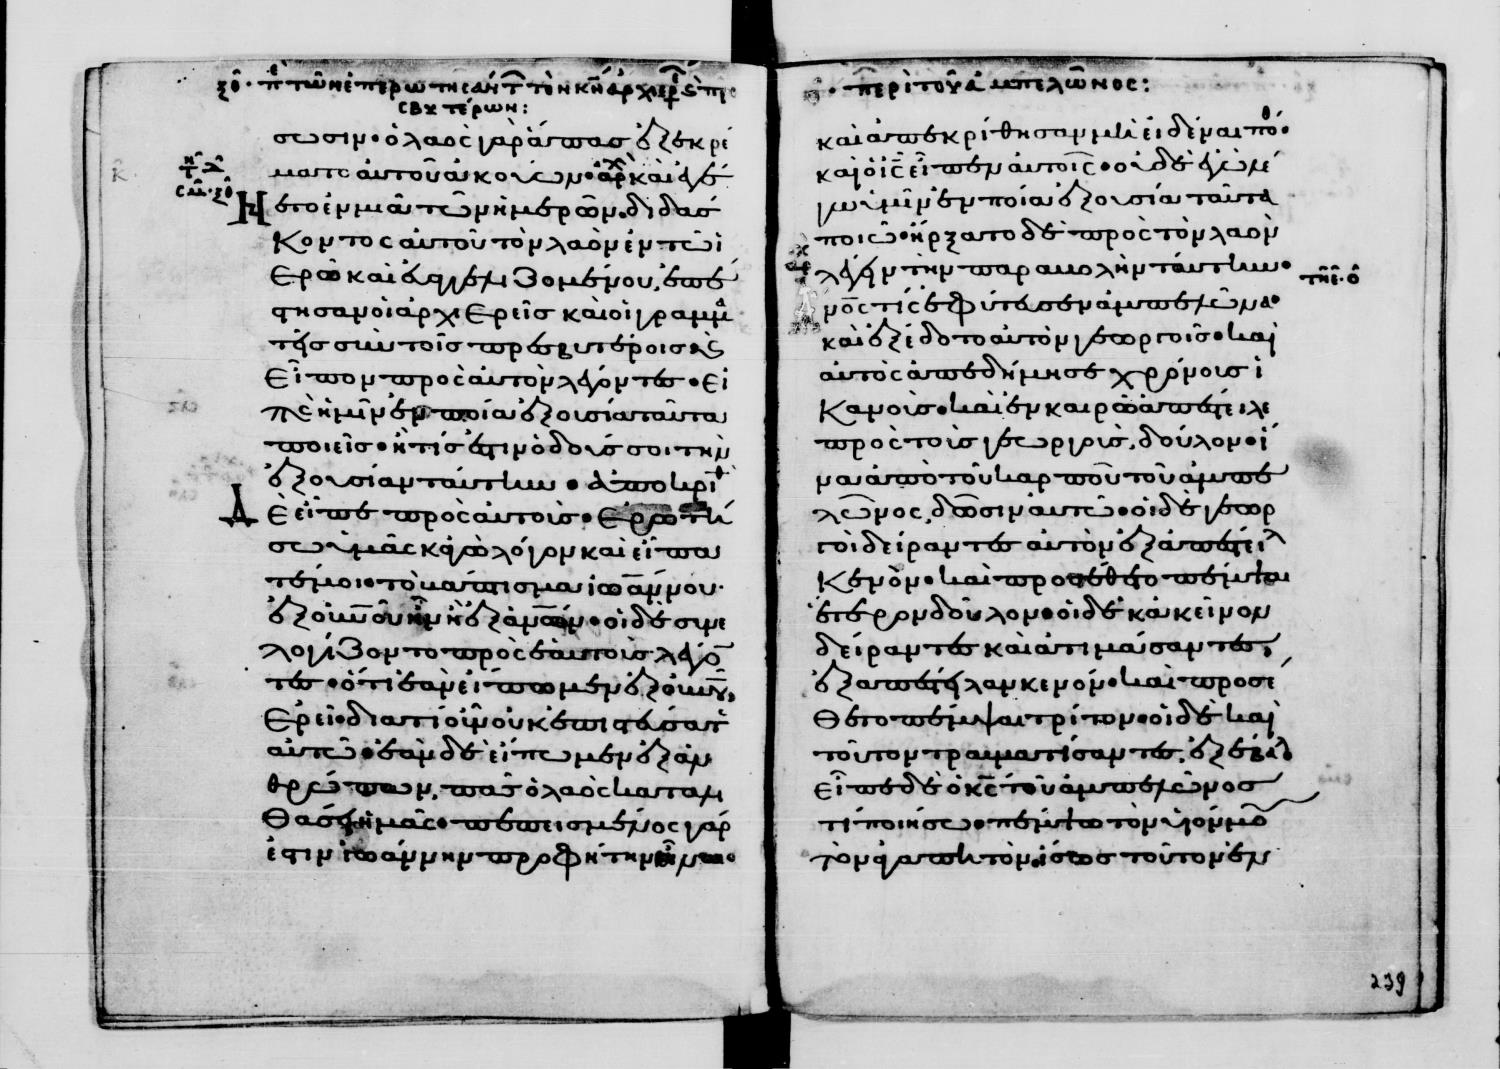 ξθ· πε τῶν ἐπερωτησάντ τὸν κν ἀρχιερ ς πρε
σβυτέρων:
σωσιν· ὁ λαὸς γὰρ ἅπας ἐξεκρέ
ματο αὐτοῦ ἀκούων· αρχ καὶ ἐγέ
νετο ἐν μιᾶ τῶν ἡμερῶν· διδάσ
κοντος αὐτοῦ τὸν λαὸν ἐν τῶ ἱ
ερῶ καὶ εὐαγγελιζομένου, ἐπέ
στησαν οἱ ἀρχιερεῖς καὶ οἱ γραμμα
τεῖς σὺν τοῖς πρεσβυτέροις· ς
εἶπον πρὸς αὐτὸν λέγοντες· εἰ
πὲ ἡμῖν ἐν ποία ἐξουσία ταῦτα
ποιεῖς· ἢ τίς ἐστιν ὁ δούς σοι τὴν
ἐξουσίαν ταύτην· ἀποκριθ
εὶς εἶπε πρὸς αὐτούς· ἐρωτή
σω ὑμᾶς κἀγὼ λόγον καὶ εἴπα
τέ μοι· τὸ βάπτισμα ἰωάννου·
ἐξ οὐνοῦ ἦν ἢ ἐξ ἀνων· οἱ δὲ συνε
λογίζοντο πρὸς ἑαυτοὺς λέγο
τες· ὅτι ἐὰν εἴπωμεν ἐξ οὐνοῦ,
ἐρεῖ· διατί οὖν οὐκ ἐπιστεύσατε
αὐτῶ· ἐὰν δὲ εἴπωμεν ἐξ ἀν
θρώπων, πᾶς ὁ λαὸς κατα
θάσει ἡμᾶς· πεπεισμένος γάρ
ἐστιν ἰωάννην προφήτην εἶναι·
ο· περὶ τοῦ ἀμπελῶνος:
καὶ ἀπεκρίθησαν μὴ εἰδέναι πόθ·
καὶ ὁ ις εἶπεν αὐτοῖς· οὐδὲ ἐγὼ λέ
γω ὑμῖν ἐν ποία ἐξουσία ταῦτα
ποιῶ· ἤρξατο δὲ πρὸς τὸν λαὸν
λέγειν τὴν παραβολὴν ταύτην·
ανος τις ἐφύτευσεν ἀμπελῶνα·
καὶ ἐξέδοτο αὐτὸν γεωργοῖς· καὶ
αὐτὸς ἀπεδήμησε χρόνους ἱ
κανούς· καὶ ἐν καιρῶ ἀπέστειλε
πρὸς τοὺς γεωργοὺς, δοῦλον· ἵ
να ἀπὸ τοῦ καρποῦ τοῦ ἀμπε
λῶνος, δῶσιν αὐτῶ· οἱ δὲ γεωρ
γοὶ δείραντες αὐτὸν ἐξαπέστειλ
κενόν· καὶ προσέθετο πέμψαι
ἕτερον δοῦλον· οἱ δὲ κἀκεῖνον
δείραντες καὶ ἀτιμάσαντες,
ἐξαπέστειλαν κενόν· καὶ προσέ
θετο πέμψαι τρίτον· οἱ δὲ καὶ
τοῦτον τραυματίσαντες, ἐξέβαλ
εἶπε δὲ ὁ κς τοῦ ἀμπελῶνος
τί ποιήσω· πέμψω τὸν υἱόν μου
τὸν ἀγαπητὸν· ἴσως τοῦτον ἐν
τῆ ε ο
239